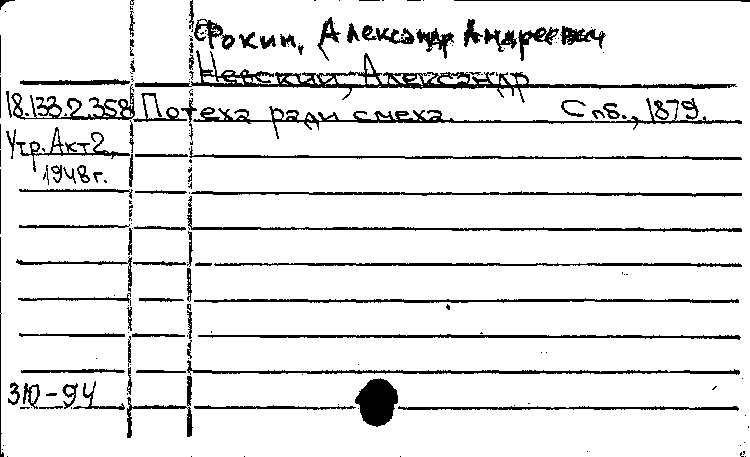 Фокин, Александр Андреевич
Невский, Александр
18.133.2.358 Потеха ради смеха. Спб., 1879.
Утр. Акт 2,
1948 г.
310-94